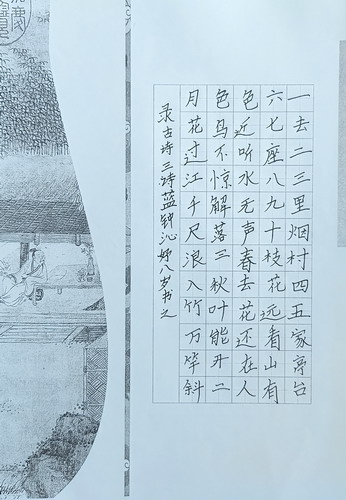 一去二三里烟村四五家亭台
六七座八九十枝花远看山有
色近听水无声春去花还在人
色鸟不惊解落三秋叶能开二
月花过江千尺浪入竹万竿斜
录古诗三诗蓝钟沁妍八岁书之